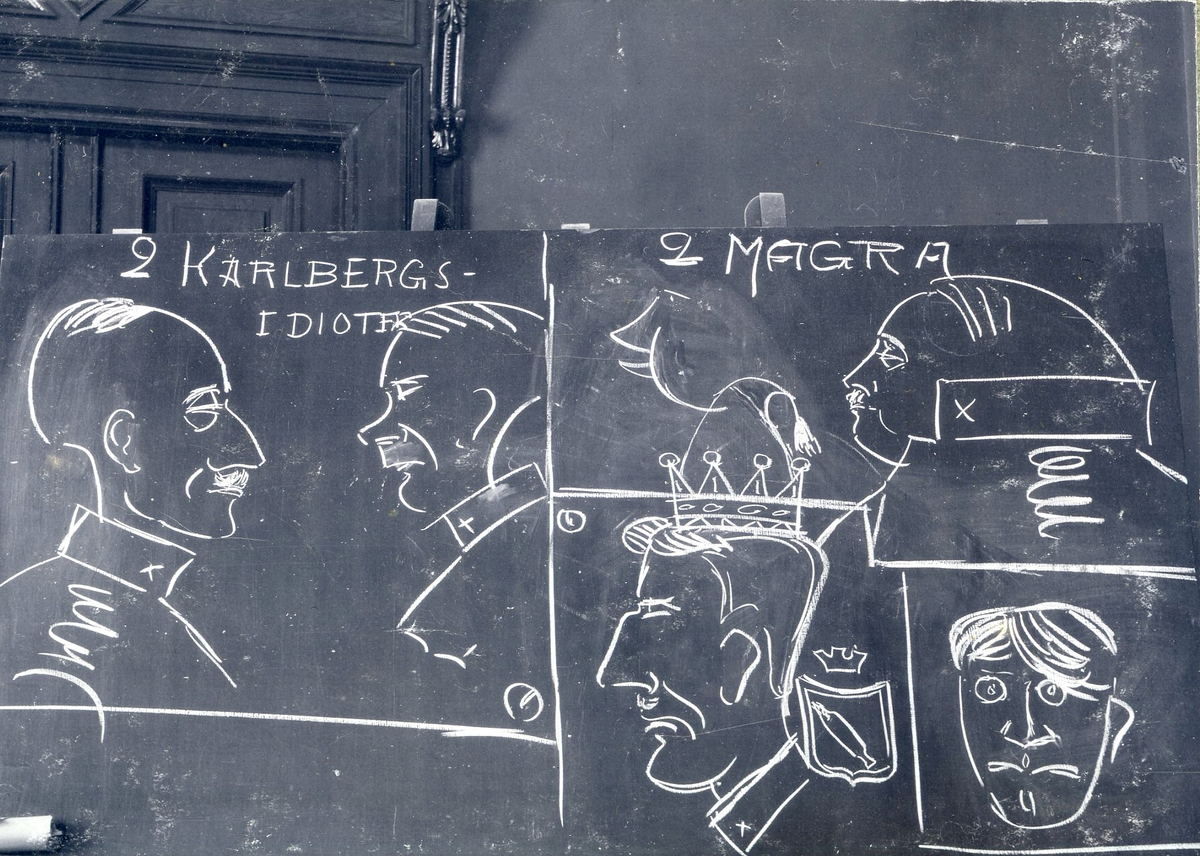 2 KARLBERGS-
IDIOTER
2 MAGRA